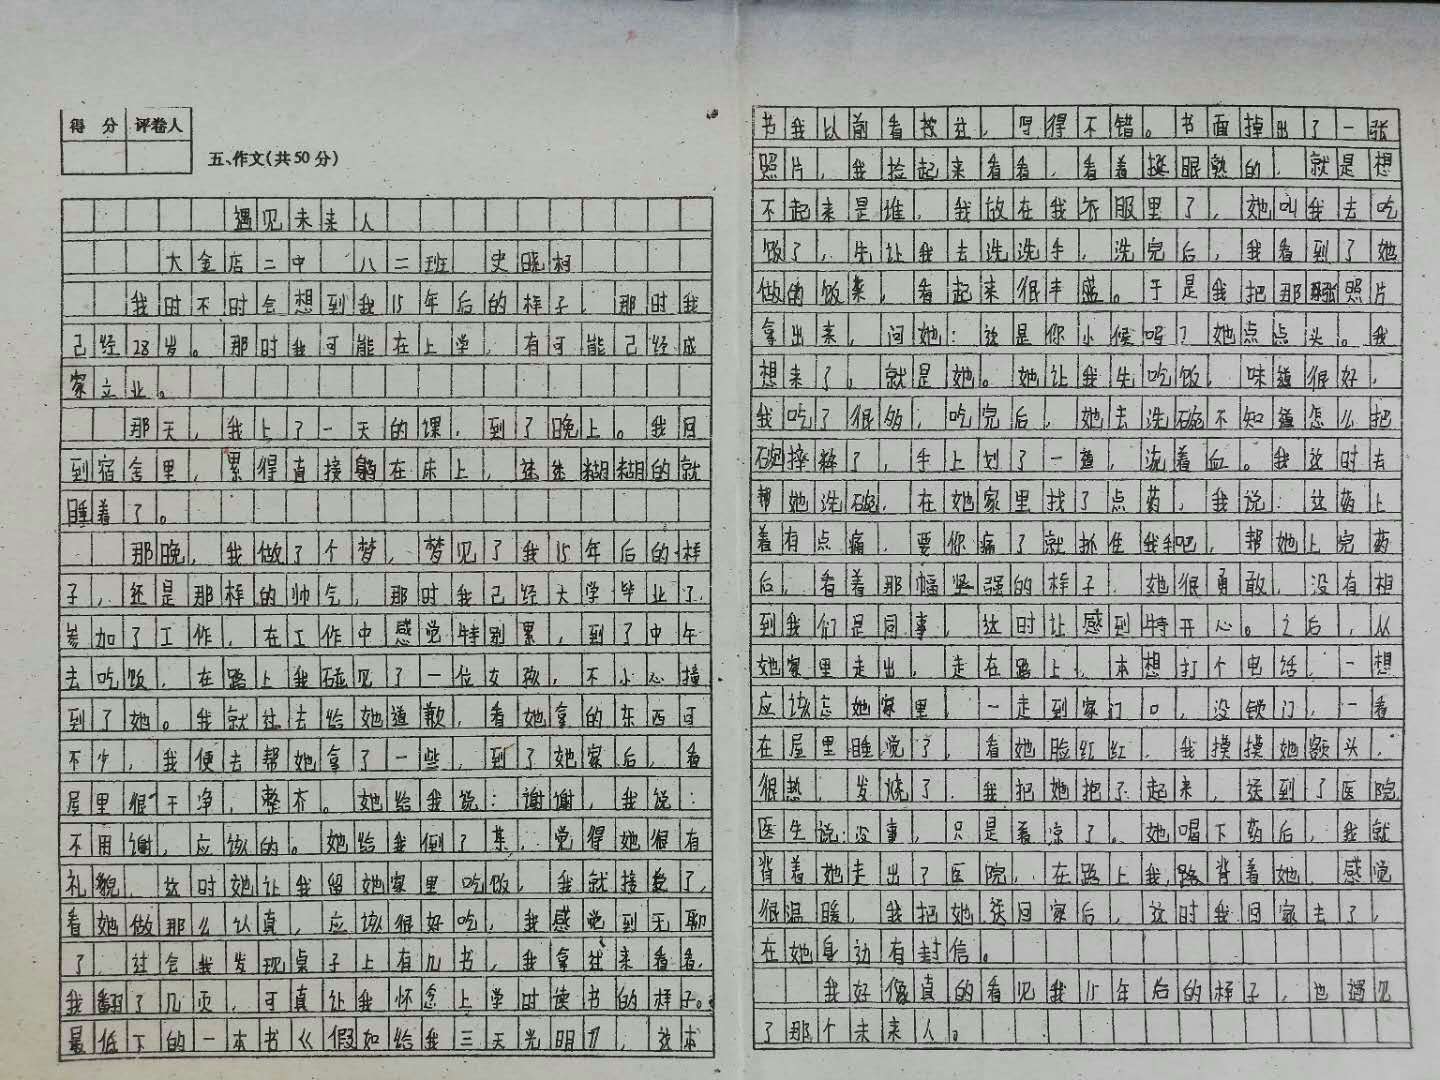 得 分 评卷人
五、作文(共50分)
遇见未来人
大金店二中 八二班 史晓柯
我时不时会想到我15年后的样子，那时我
已经28岁。那时我可能在上学，有可能已经成
家立业。
那天，我上了一天的课，到了晚上。我回
到宿舍里，累得直接躺在床上，迷迷糊糊的就
睡着了。
那晚，我做了个梦，梦见了我15年后的样
子，还是那样的帅气，那时我已经大学毕业了，
参加了工作，在工作中感觉特别累，到了中午
去吃饭，在路上我碰见了一位女孩，不小心撞
到了她。我就过去给她道歉，看她拿的东西可
不少，我便去帮她拿了一些，到了她家后，看
屋里很干净，整齐。她给我说：谢谢，我说：
不用谢，应该的。她给我倒了茶，觉得她很有
礼貌，这时她让我留她家里吃饭，我就接受了，
看她做那么认真，应该很好吃，我感觉到无聊
了，过会我发现桌子上有几书，我拿过来看看，
我翻了几页，可真让我怀念上学时读书的样子。
最低下的一本书《假如给我三天光明》，这本
书我以前看过，写得不错。书面掉出了一张
照片，我捡起来看看，看着挺眼熟的，就是想
不起来是谁，我放在我衣服里了，她叫我去吃
饭了，先让我去洗洗手，洗完后，我看到了她
做的饭菜，看起来很丰盛。于是我把那张照片
拿出来，问她：这是你小候吗？她点点头。我
想来了，就是她。她让我先吃饭，味道很好，
我吃了很多，吃完后，她去洗碗不知道怎么把
碗摔碎了，手上划了一道，流着血。我这时去
帮她洗碗，在她家里找了点药，我说：这药上
着有点痛，要你痛了就抓住我手吧，帮她上完药
后，看着那幅坚强的样子，她很勇敢，没有想
到我们是同事，这时让感到特开心。之后，从
她家里走出，走在路上，本想打个电话，一想
应该忘她家里，一走到家门口，没锁门，一看
在屋里睡觉了，看她脸红红，我摸摸她额头，
很热，发烧了，我把她抱了起来，送到了医院
医生说：没事，只是着凉了。她喝下药后，我就
背着她走出了医院，在路上我背着她，感觉
很温暖，我把她送回家后，这时我回家去了，
在她身边有封信。
我好像真的看见我15年后的样子，也遇见
了那个未来人。